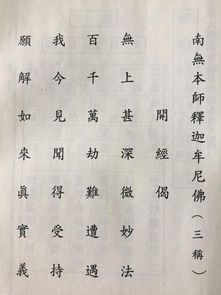 南無本師釋迦牟尼佛（三稱）
開經偈
無上甚深微妙法
百千萬劫難遭遇
我今見聞得受持
願解如來眞實義